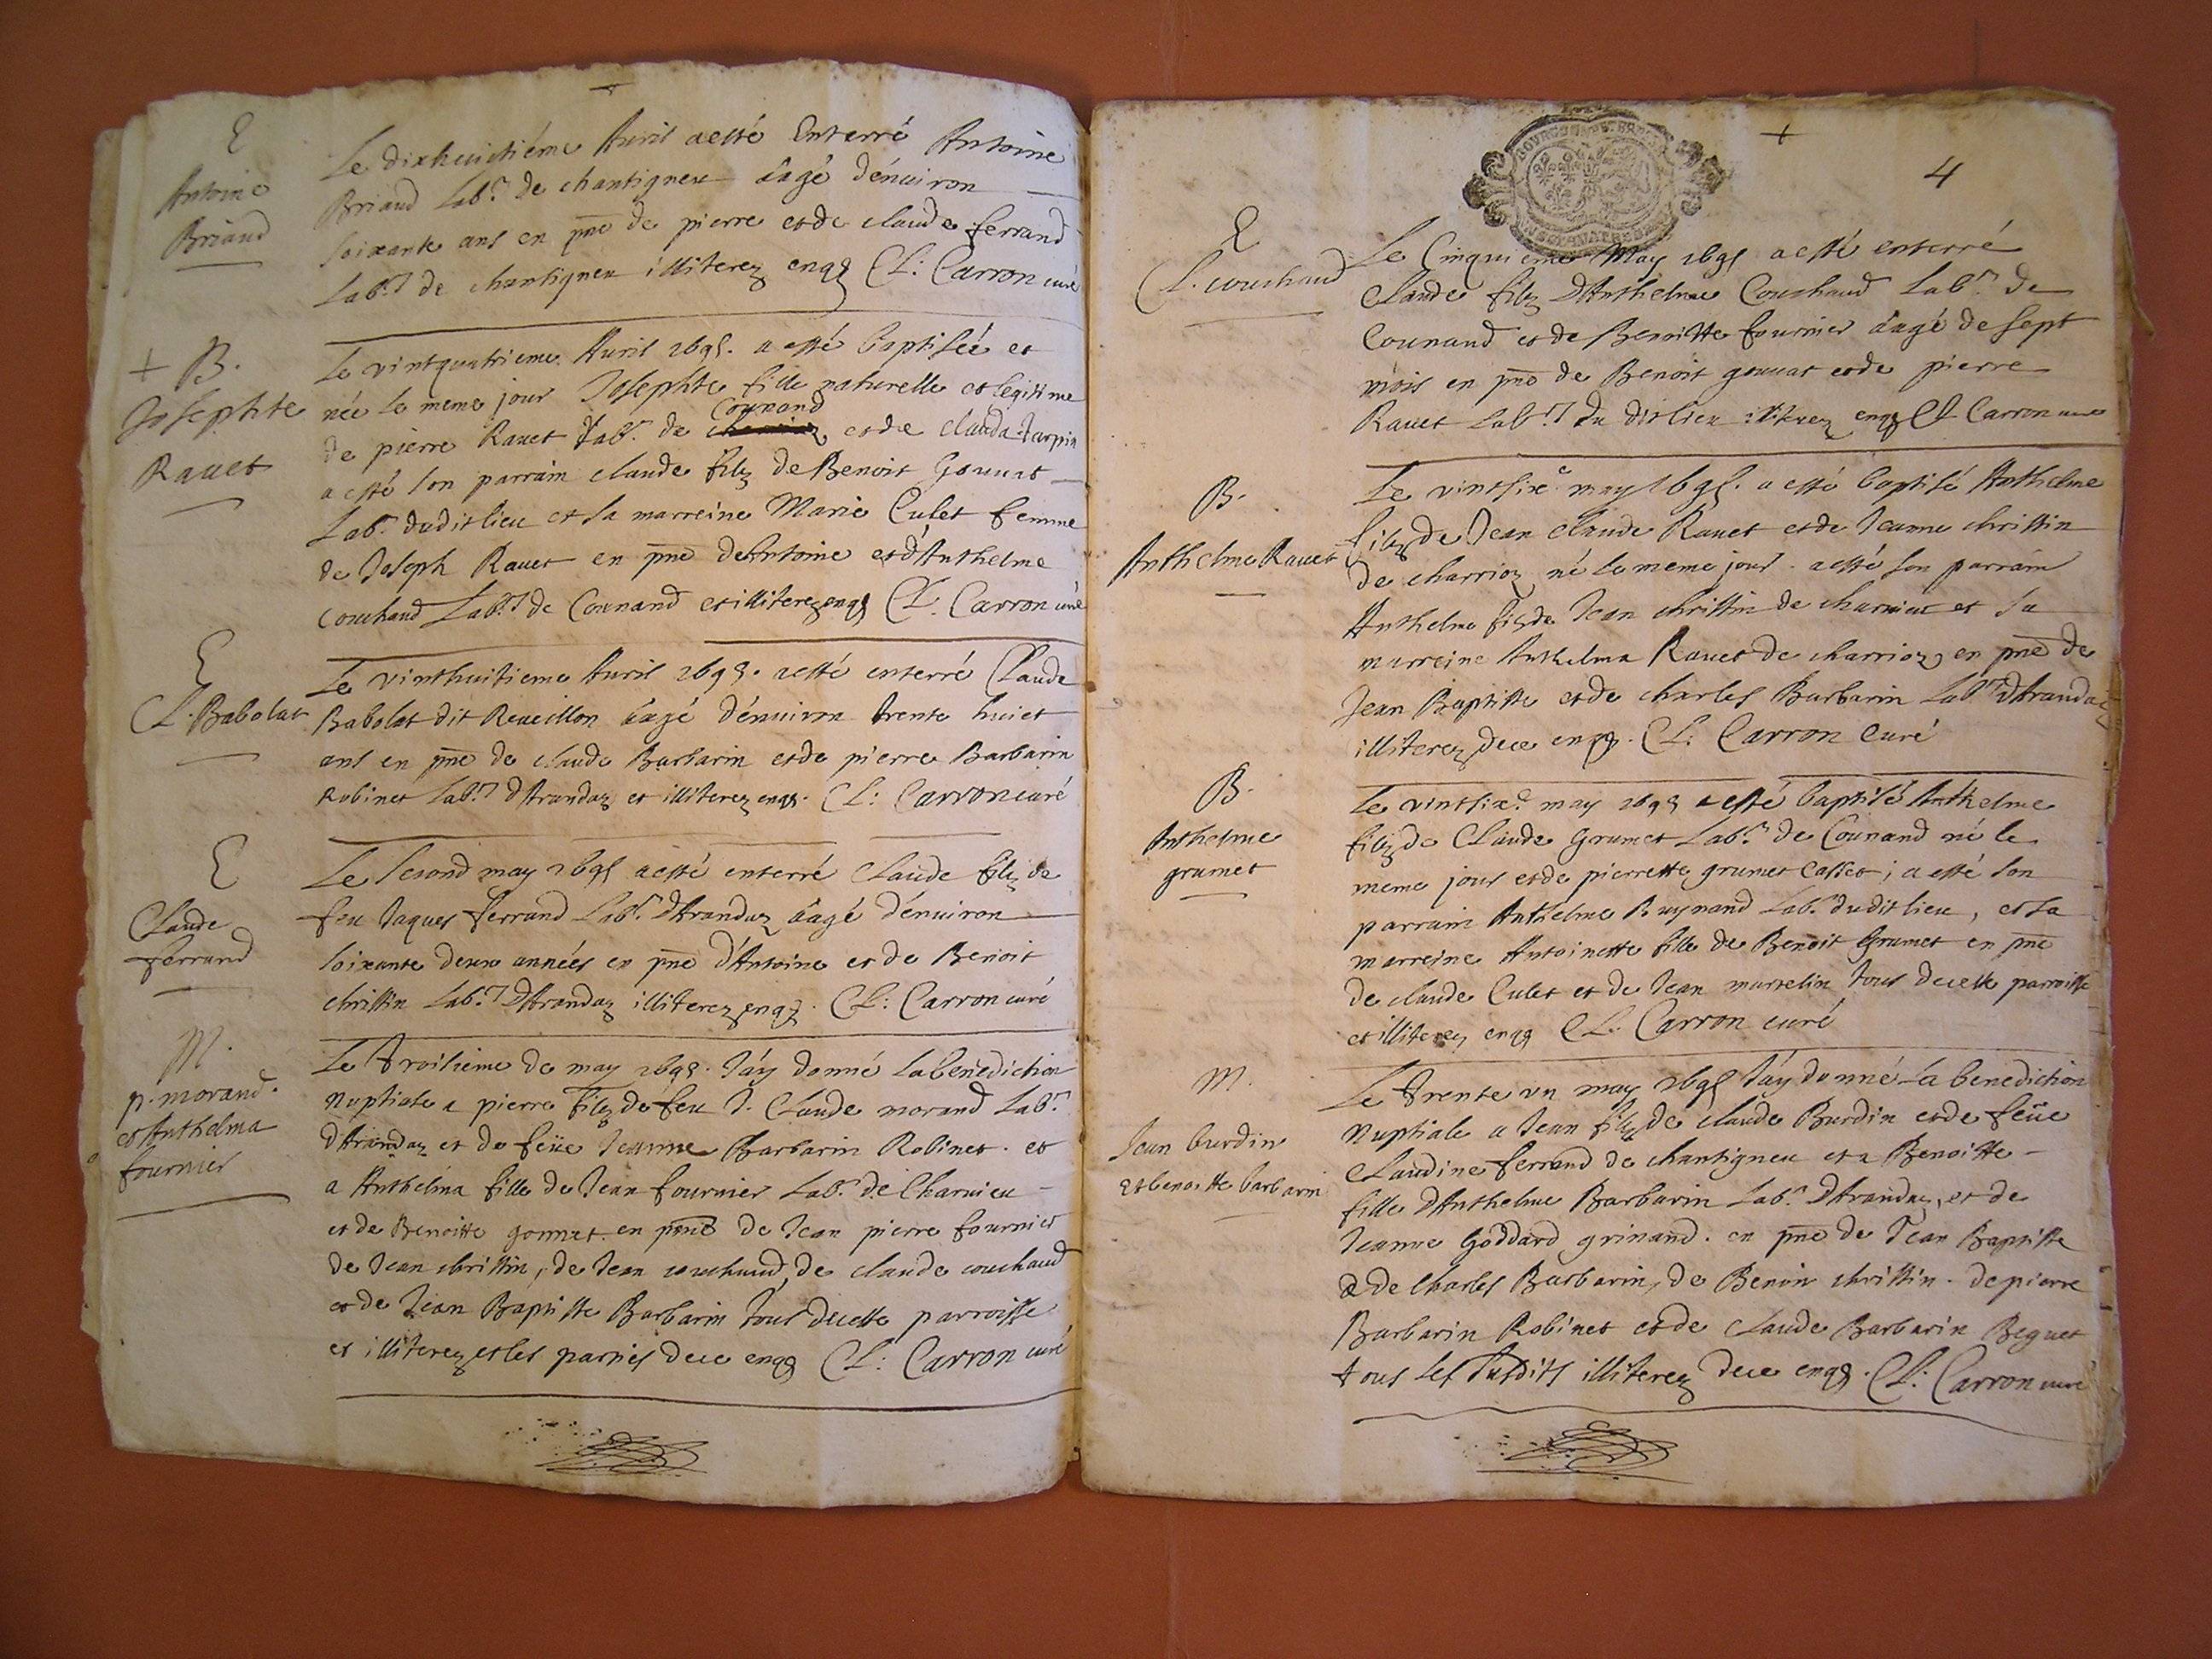 E
Antoine
Briand
Le dixhuictiéme Auril a esté Enterré Antoine
Briand Lab.r de chantigneu âagé d'énuiron
soixante ans en pñe de pierre et de claude ferrand
Lab.rs de chantigneu illiterez enqs CL: Carron curé
+ B.
Josephte
Rauet
Le vintquatrieme Auril 1695. a esté baptisée et
née le meme jour Josephte fille naturelle et legitime
Counand
de pierre Rauet Lab.r de et de clauda Jarpin
a esté son parrain claude filz de Benoit Gonnet
Lab.r dudit lieu et sa marreine Marie Culet femme
de Joseph Rauet en pñe de Antoine et d'Anthelme
couchaud Lab.rs de Counand et illiterez enqs CL: Carron curé
E
CL. Babolat
Le vinthuitieme Auril 1695. a esté enterré Claude
Babolat dit Reueillon âagé d'énuiron trente huict
ans en pñe de claude Barbarin et de pierre Barbarin
Robinet Lab.rs d'Arandaz et illiterez enqs. CL: Carron curé
E
Claude
ferrand
Le second may 1695 a esté enterré Claude filz de
feu Jaques ferrand Lab.r d'Arandaz âagé d'énuiron
soixante deux années en pñe d'Antoine et de Benoit
christin Lab.rs d'Arandaz illiterez enqs. CL: Carron curé
M.
p. morand.
et Anthelma
fournier
Le troisieme de may 1695. J'áy donné la bénédiction
nuptiale a pierre filz de feu J. Claude morand Lab.r
d'Arandaz et de feüe Jeanne Barbarin Robinet. et
a Anthélma fille de Jean fournier Lab.r de Charuieu
et de Benoitte gonnet en pñe de Jean pierre fournier
de Jean christin, de Jean couchaud, de claude couchaud
et de Jean Baptiste Barbarin tous de cette parroisse
et illiterez et les parties de ce enqs CL: Carron curé
4
E
CL. couchaud
Le Cinquieme May 1695 a esté enterré
Claude filz d'Anthelme Couchaud Lab.r de
Counand et de Benoitte fournier âagé de sept
mois en pñe de Benoit gonnet et de pierre
Rauet Lab.rs du dit lieu illiterez enqs CL Carron curé
B.
Anthelme Rauet
Le vintsix.e may 1695. a esté baptisé Anthelme
filz de Jean claude Rauet et de Jeanne christin
de charrioz né le meme jour. a esté son parrain
Anthelme filz de Jean christin de charuieu et sa
marreine Anthelma Rauet de charrioz en pñe de
Jean Baptiste et de charles Barbarin Lab.rs d'Arandaz
illiterez de ce enqs. CL: Carron Curé
B.
Anthelme
grumet
Le vintsix.e may 1695 a esté baptisé Anthelme
filz de Claude Grumet Lab.r de Counand né le
meme jour et de pierrette grumet Casset; a esté son
parrain Anthelme Buynand Lab.r dudit lieu, et sa
marreine Antoinette fille de Benoit Grumet en pñe
de claude Culet et de Jean martelin tous de cette parroisse
et illiterez enqs CL: Carron curé
M.
Jean burdin
et benoitte barbarin
Le trente un may 1695 J'áy donné La benediction
Nuptiale a Jean filz de claude Burdin et de feüe
Claudine ferrand de chantigneu et a Benoitte
fille d'Anthelme Barbarin Lab.r d'Arandaz, et de
Jeanne Goddard grinand. en pñe de Jean Baptiste
& de Charles Barbarin, de Benoit christin. de pierre
Barbarin Robinet et de Claude Barbarin Beguet
tous les susdits illiterez de ce enqs. CL: Carron curé